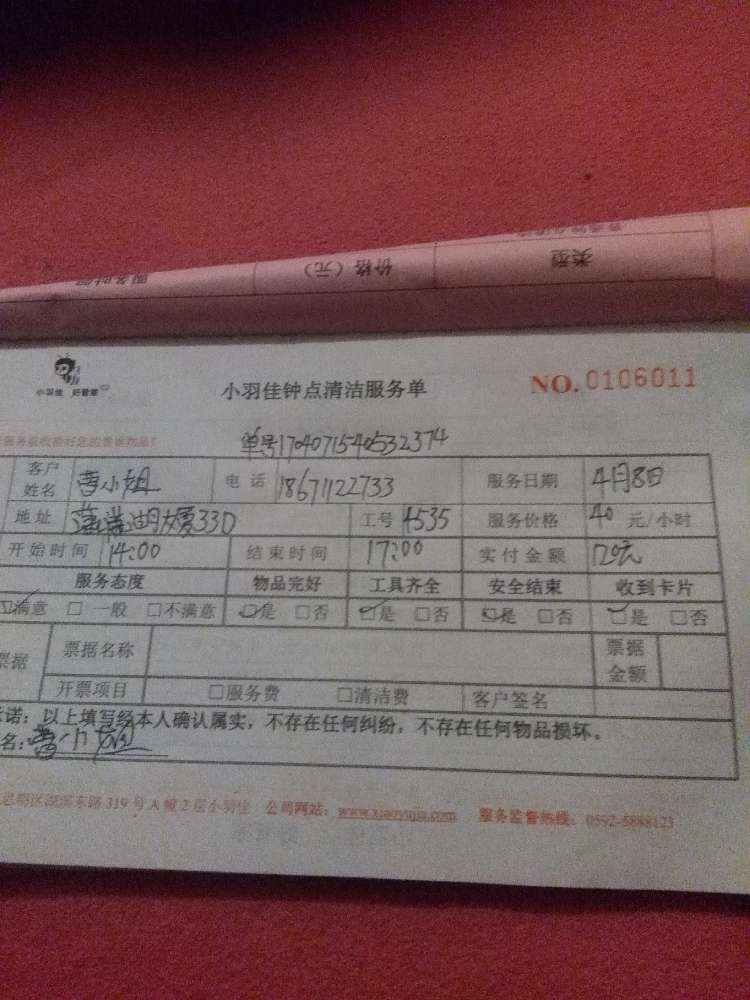 类型
价格（元）
小羽佳 好管家
小羽佳钟点清洁服务单
NO. 0106011
单号1704071540532374
客户姓名 曹小姐 电话 18671122733 服务日期 4月8日
地址 湖大厦33D 工号 4535 服务价格 40 元/小时
开始时间 14:00 结束时间 17:00 实付金额 120元
服务态度 物品完好 工具齐全 安全结束 收到卡片
☑满意 □一般 □不满意 ☑是 □否 ☑是 □否 ☑是 □否 ☑是 □否
票据 票据名称 票据金额
开票项目 □服务费 □清洁费 客户签名
诺：以上填写经本人确认属实，不存在任何纠纷，不存在任何物品损坏。
名：曹小姐
思明区 东路319号A幢2层小羽佳 公司网站：www.xiaoyujia.com 服务监督热线：0592-5888123